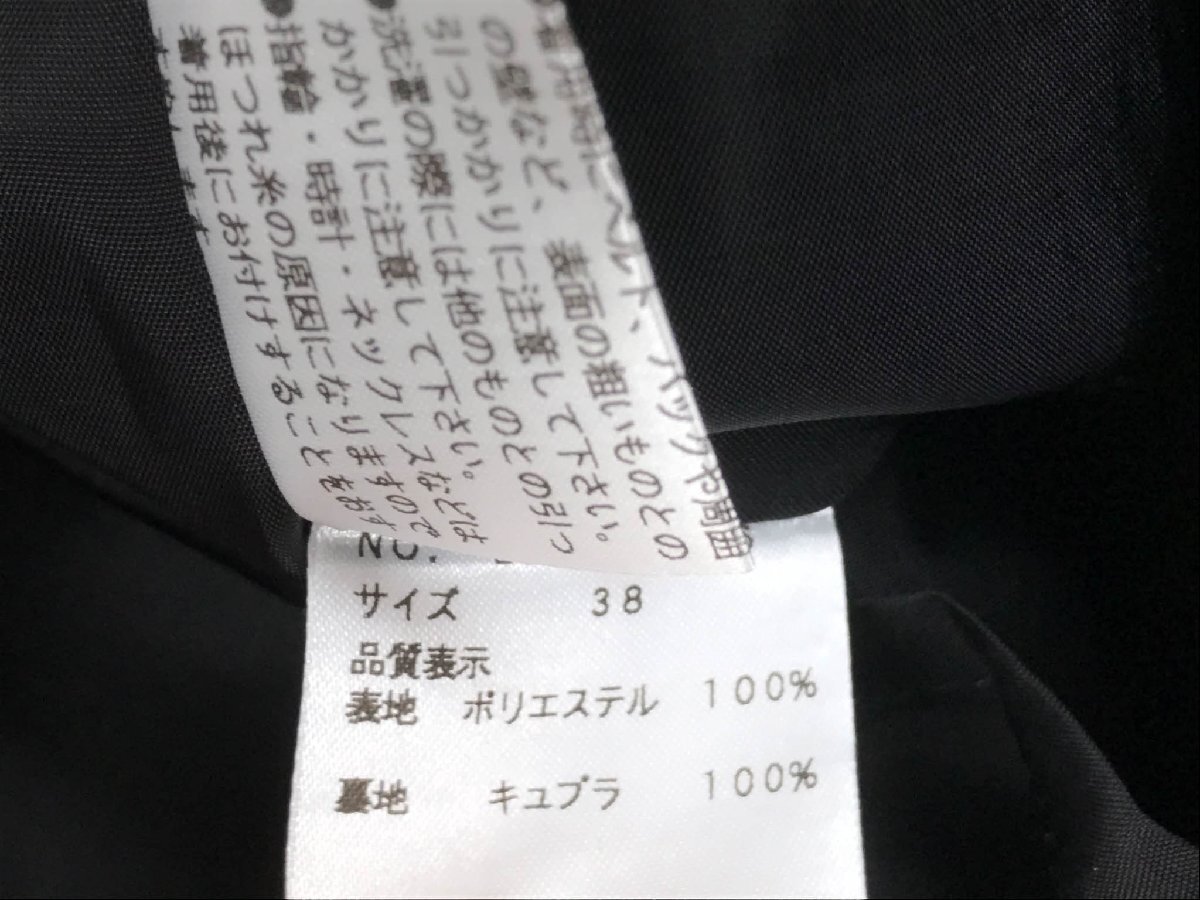 着用時にベルト、バックや周囲
の壁など、表面の粗いものとの
引っかかりに注意して下さい。
●洗濯の際には他のものとの引っ
かかりに注意して下さい。
●指輪・時計・ネックレスなどは
ほつれ糸の原因になりますので
着用後にお付けすることをおす
サイズ 38
品質表示
表地 ポリエステル 100%
裏地 キュプラ 100%